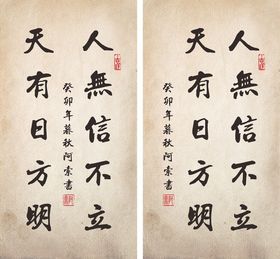 人無信不立
天有日方明
癸卯年暮秋阿索書
人無信不立
天有日方明
癸卯年暮秋阿索書